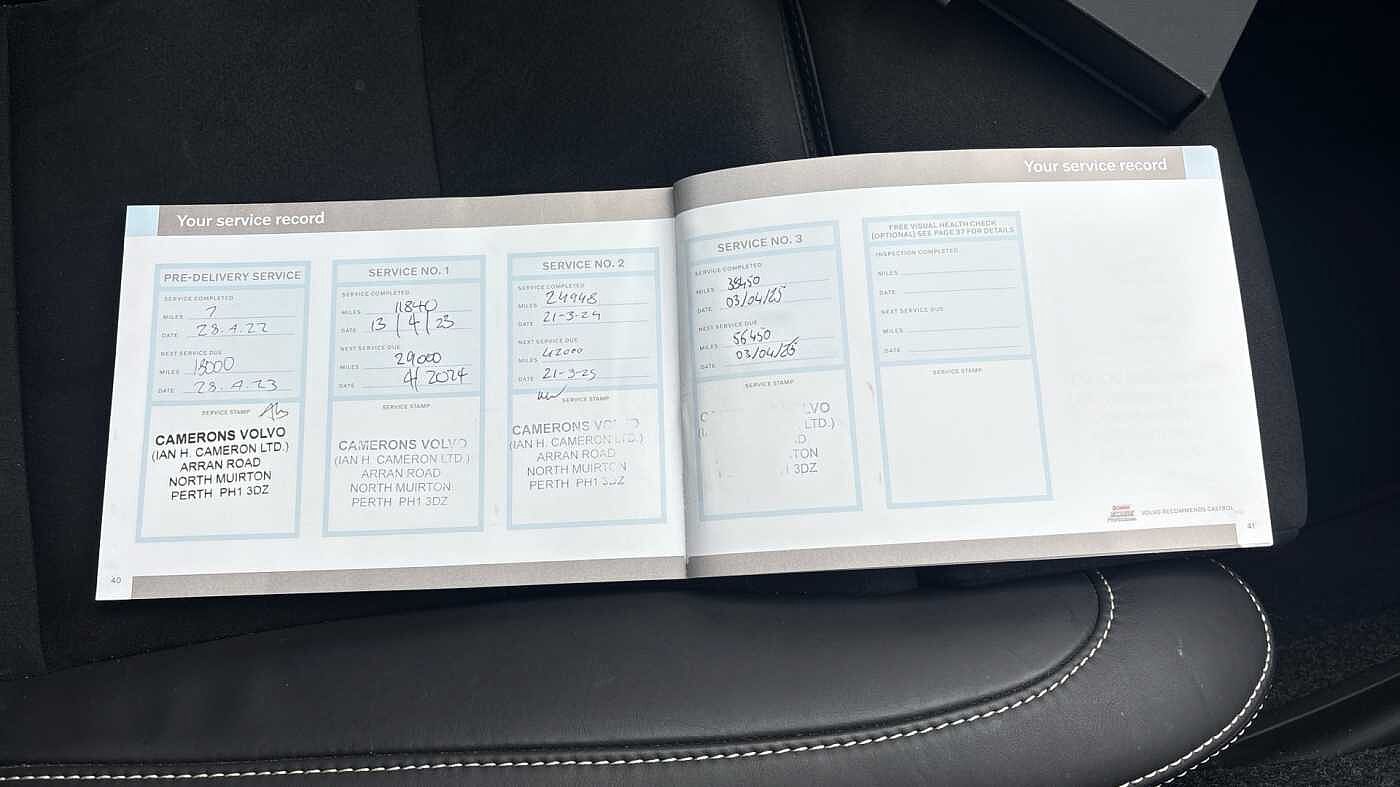 Your service record
PRE-DELIVERY SERVICE
SERVICE COMPLETED
MILES 7
DATE 28.4.22
NEXT SERVICE DUE
MILES 18000
DATE 28.4.23
SERVICE STAMP
CAMERONS VOLVO
(IAN H. CAMERON LTD.)
ARRAN ROAD
NORTH MUIRTON
PERTH PH1 3DZ
SERVICE NO. 1
SERVICE COMPLETED
MILES 11840
DATE 13/4/23
NEXT SERVICE DUE
MILES 29000
DATE 4/2024
SERVICE STAMP
CAMERONS VOLVO
(IAN H. CAMERON LTD.)
ARRAN ROAD
NORTH MUIRTON
PERTH PH1 3DZ
SERVICE NO. 2
SERVICE COMPLETED
MILES 24948
DATE 21-3-24
NEXT SERVICE DUE
MILES 42000
DATE 21-3-25
SERVICE STAMP
CAMERONS VOLVO
(IAN H. CAMERON LTD.)
ARRAN ROAD
NORTH MUIRTON
PERTH PH1 3DZ
40
Your service record
SERVICE NO. 3
SERVICE COMPLETED
MILES 38450
DATE 03/04/25
NEXT SERVICE DUE
MILES 56450
DATE 03/04/26
SERVICE STAMP
LVO
LTD.)
D
TON
3DZ
FREE VISUAL HEALTH CHECK
(OPTIONAL) SEE PAGE 37 FOR DETAILS
INSPECTION COMPLETED
MILES
DATE
NEXT SERVICE DUE
MILES
DATE
SERVICE STAMP
VOLVO RECOMMENDS CASTROL
41